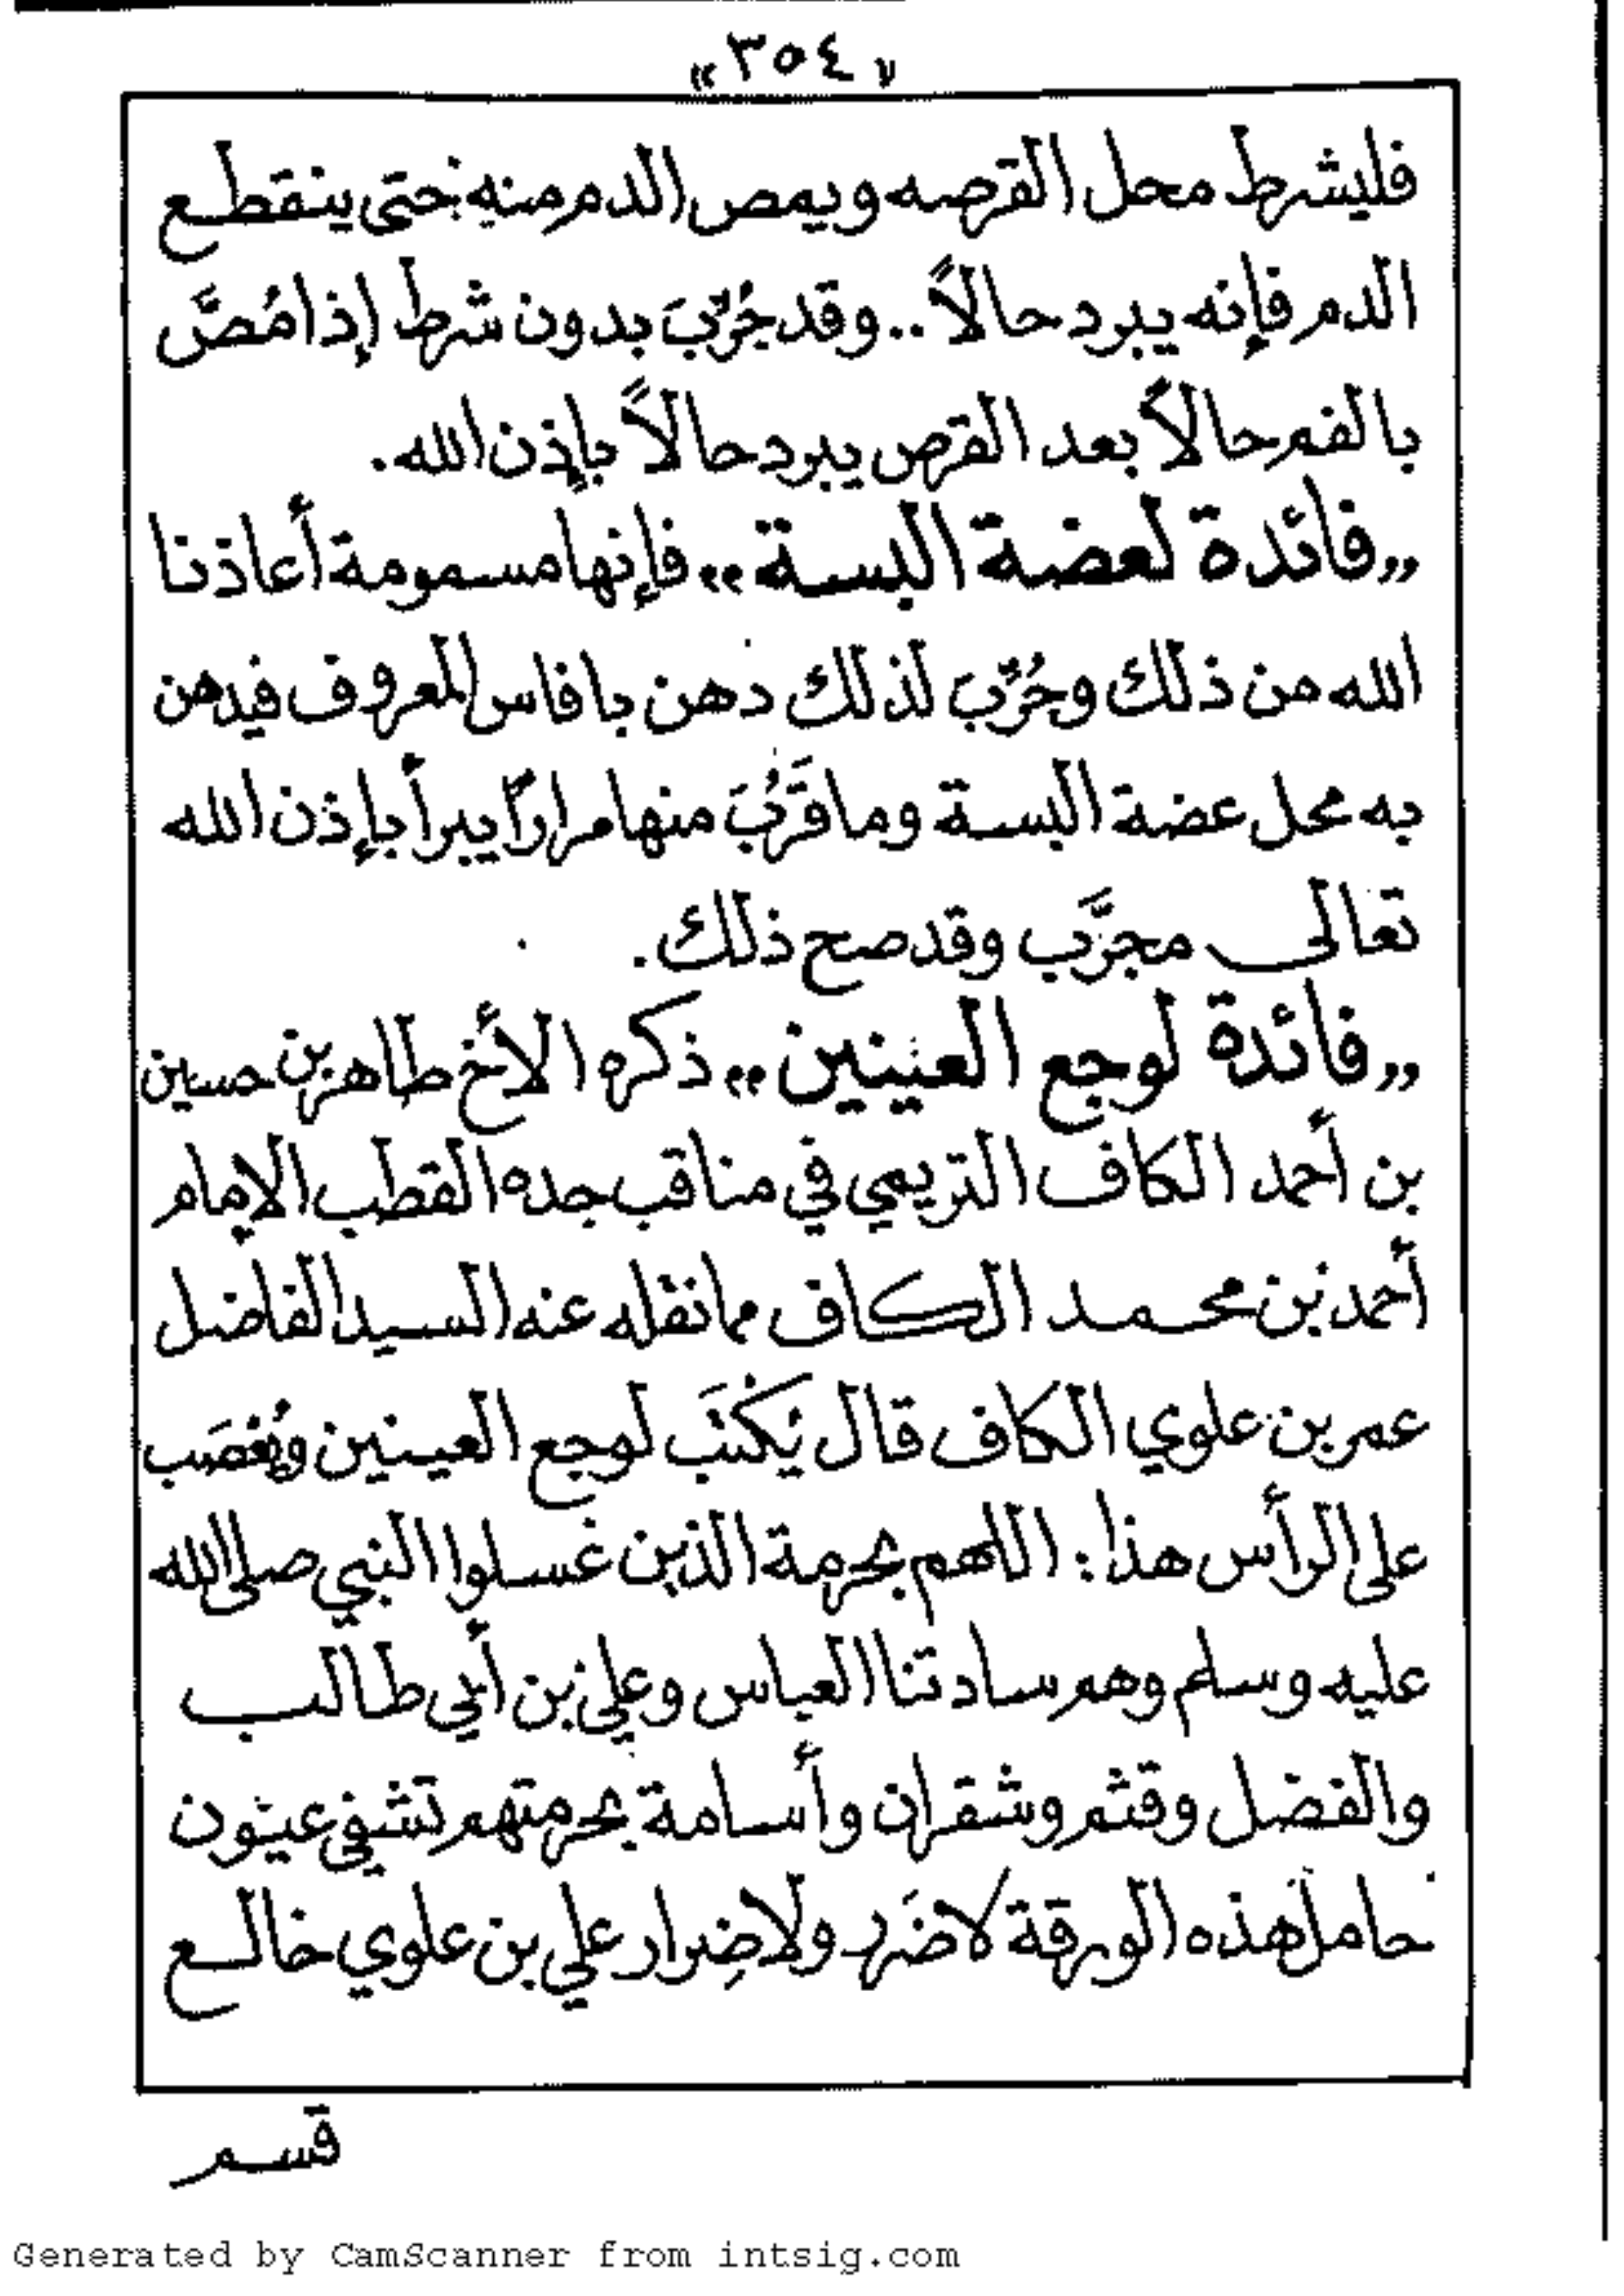 «٣٥٤»
فليشرط محل القرصه ويمص الدم منه حتى ينقطع
الدم فإنه يبرد حالاً.. وقد جُرِّبَ بدون شرط إذا مُصَّ
بالفم حالاً بعد القرص يبرد حالاً بإذن الله.
„فائدة لعضة البسة„ فإنها مسمومة أعاذنا
الله من ذلك وجُرِّبَ لذلك دهن بافاس المعروف فيدهن
به محل عضة البسة وما قَرُبَ منها مراراً يبرأ بإذن الله
تعالى مجرَّب وقد صح ذلك.
„فائدة لوجع العينين„ ذكره الأخ طاهر بن حسين
بن أحمد الكاف التريمي في مناقب جده القطب الإمام
أحمد بن محمد الكاف مما نقله عنه السيد الفاضل
عمر بن علوي الكاف قال يُكْتَب لوجع العينين ويُعْصَب
على الرأس هذا: اللهم بحرمة الذين غسلوا النبي صلى الله
عليه وسلم وهم سادتنا العباس وعلي بن أبي طالب
والفضل وقثم وشقران وأسامة بحرمتهم تشفي عيون
حامل هذه الورقة لا ضَرر ولا ضِرار علي بن علوي خالع
قسم
Generated by CamScanner from intsig.com